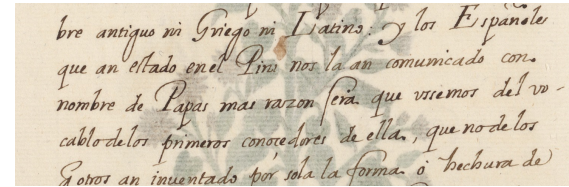 bre antiguo ni Griego ni Latino: y los Españole
que an estado en el Piru nos la an comunicado con
nombre de Papas mas razon sera que vsemos del vo-
cablo de los primeros conocedores de ella, que no de los
q otros an inuentado por sola la forma o hechura de